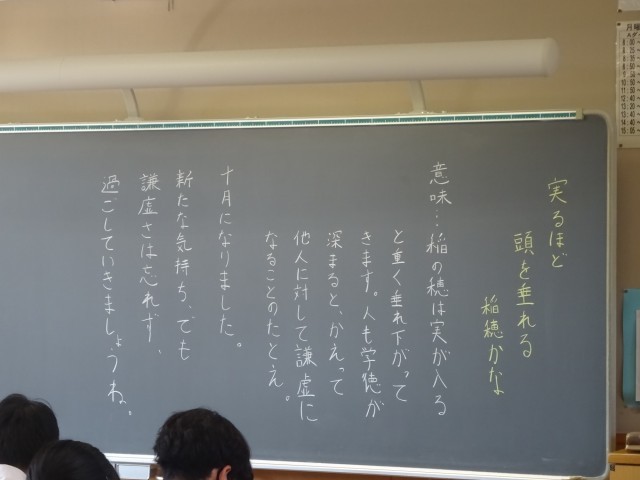 実るほど
頭を垂れる
稲穂かな
意味…稲の穂は実が入る
と重く垂れ下がって
きます。人も学徳が
深まると、かえって
他人に対して謙虚に
なることのたとえ。
十月になりました。
新たな気持ち、でも
謙虚さは忘れず、
過ごしていきましょうね。